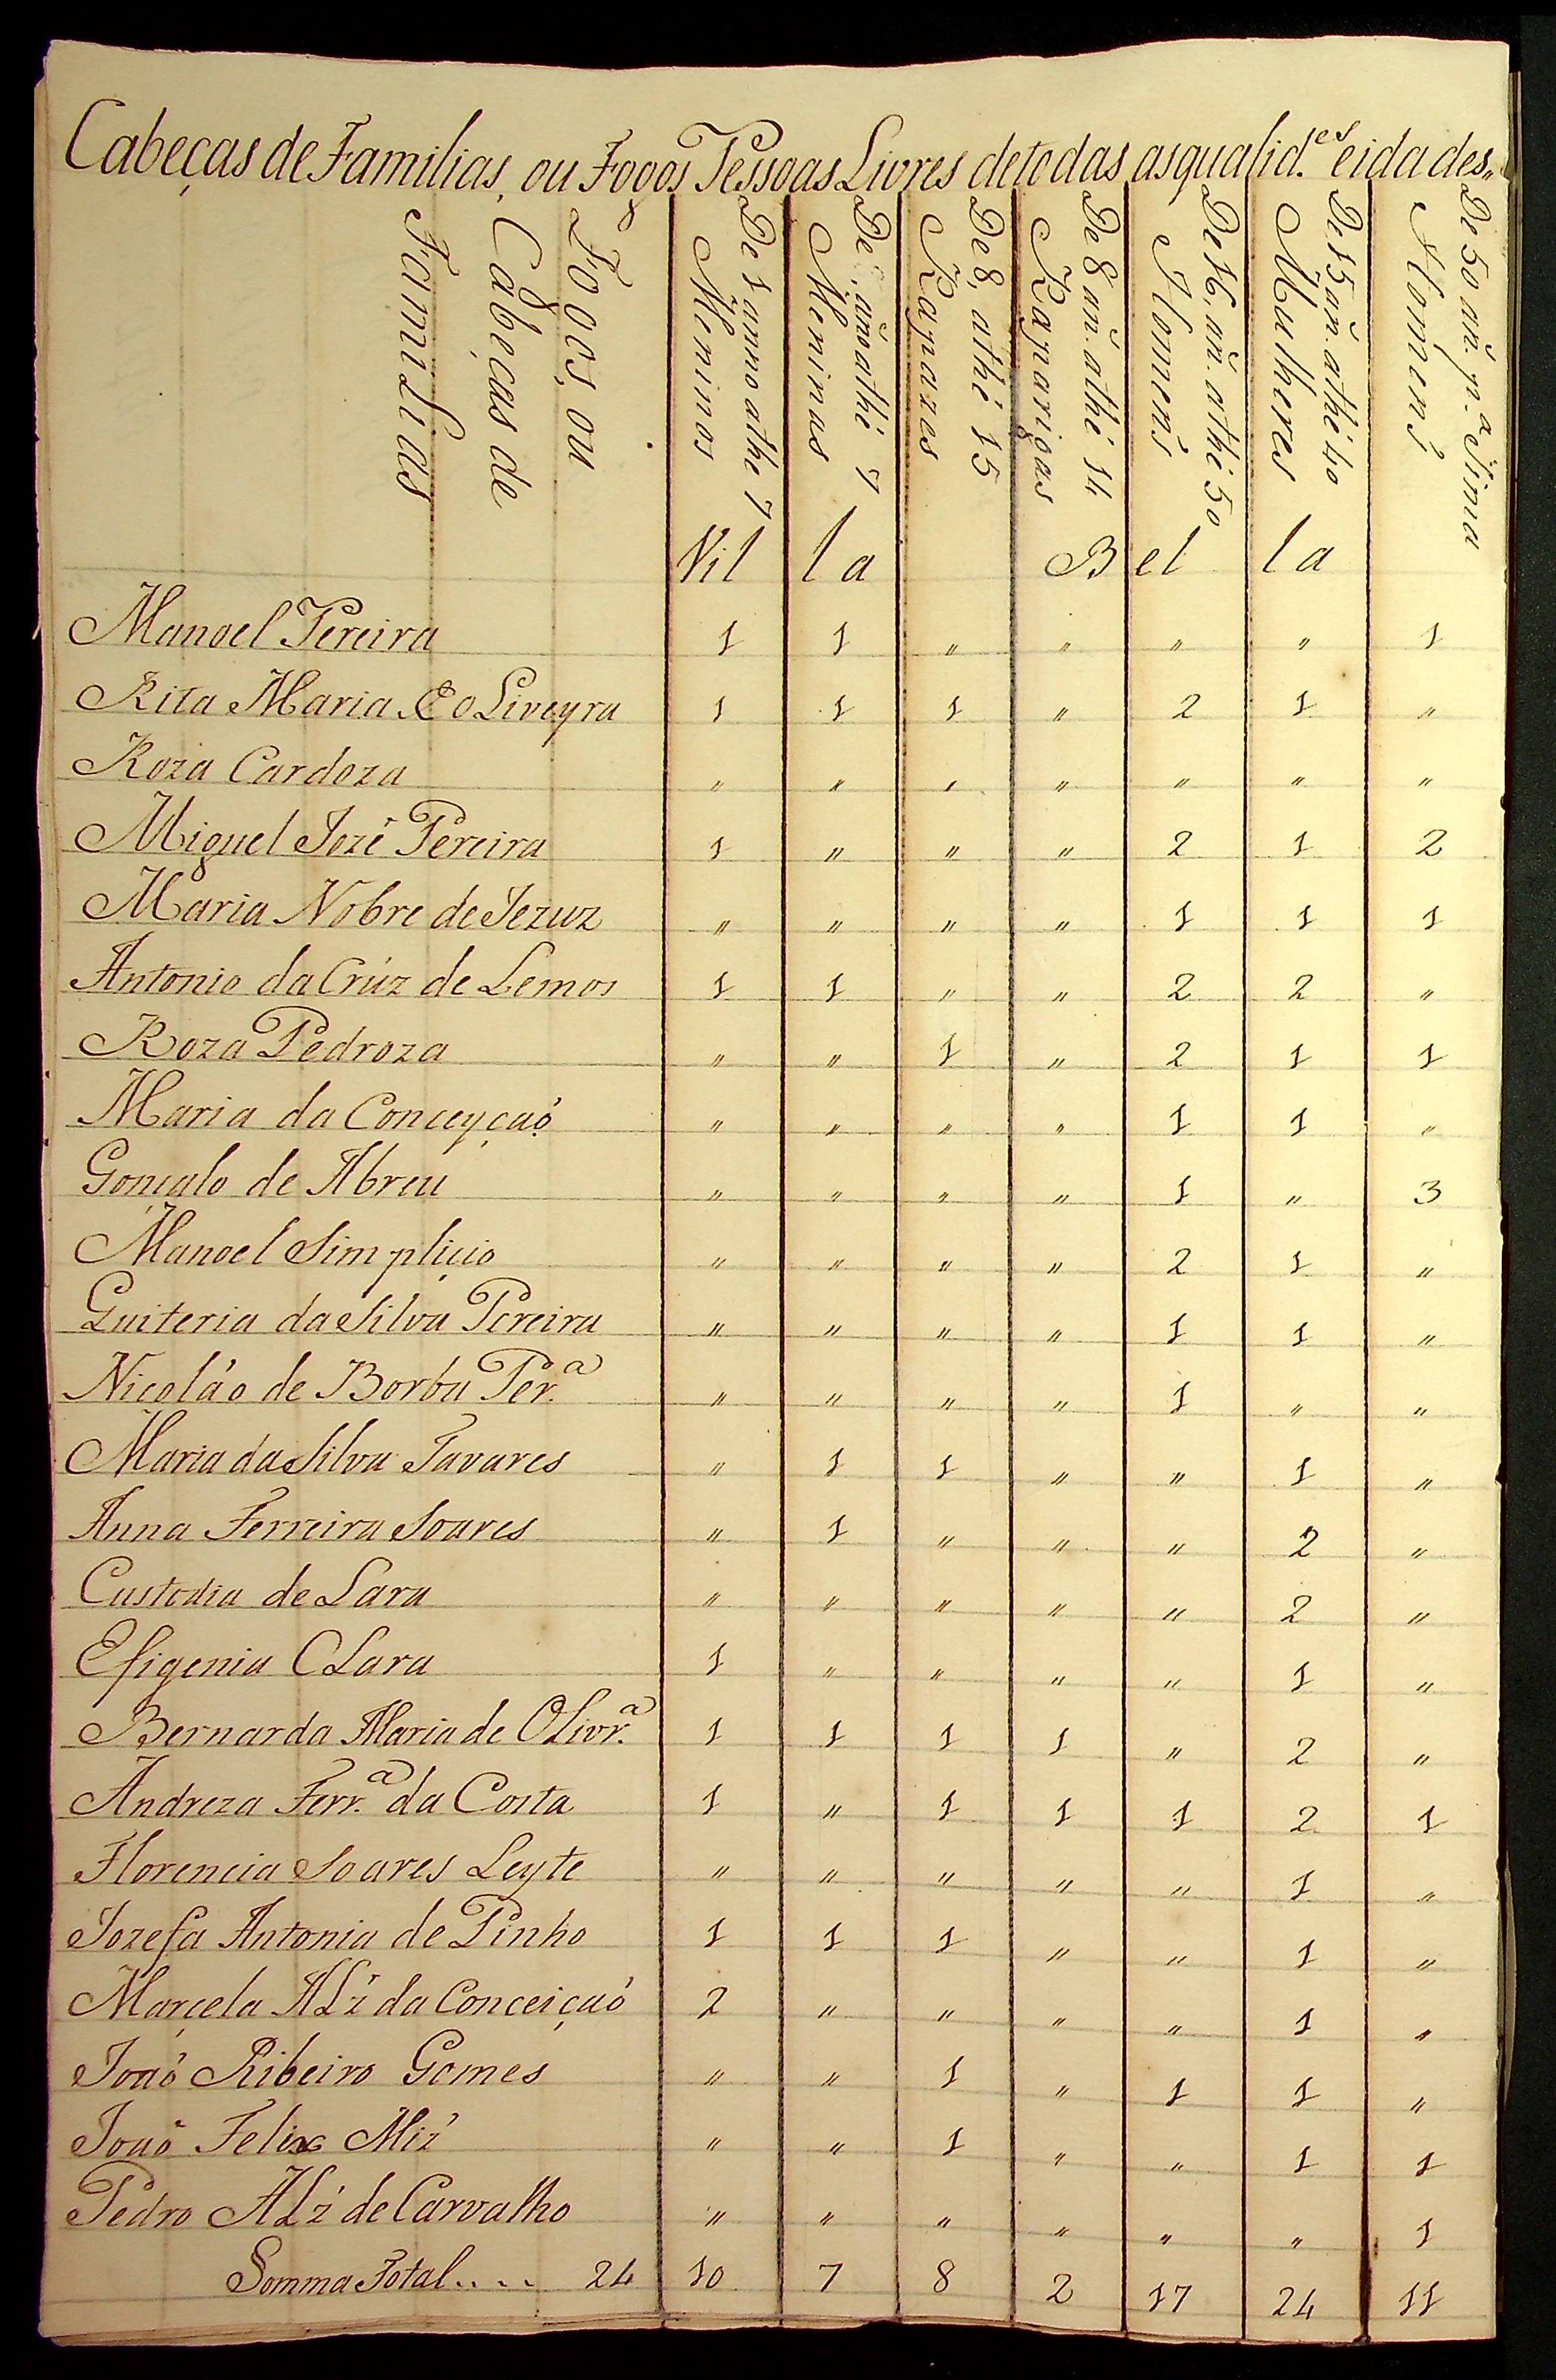 Cabeças de Familias, ou Fogos Pessoas Livres de todas as qualid.es e idades„
Fogos, ou
Cabeças de
Familias
De 1 anno athe 7
Meninos
De , año athé 7
Meninas
De 8, athé 15
Rapazes
De 8 añ. athé 14
Raparigas
De 16, añ. athé 50
Homens
De 15 añ. athé 40
Mulheres
De 50 añ. p.a Sima
Homens
Vil la B el la
Manoel Pereira 1 1 „ „ „ „ 1
Rita Maria E oLiveyra 1 1 1 „ 2 1 „
Roza Cardoza „ „ „ „ „ „ „
Miguel Jozé Pereira 1 „ „ „ 2 1 2
Maria Nobre de Jezuz „ „ „ „ 1 1 1
Antonio da Crúz de Lemos 1 1 „ „ 2 2 „
Roza Pedroza „ „ 1 „ 2 1 1
Maria da Conceyçaó „ „ „ „ 1 1 „
Gonçalo de Abreu „ „ „ „ 1 „ 3
Manoel Simpliçio „ „ „ „ 2 1 „
Quiteria da Silva Pereira „ „ „ „ 1 1 „
Nicoláo de Borba Per.a „ „ „ „ 1 „ „
Maria da Silva Tavares „ 1 1 „ „ 1 „
Anna Ferreira Soares „ 1 „ „ „ 2 „
Custodia de Lara „ „ „ „ „ 2 „
Efigenia CLara 1 „ „ „ „ 1 „
Bernarda Maria de OLivr.a 1 1 1 1 „ 2 „
Andreza Ferr.a da Costa 1 „ 1 1 1 2 1
Florencia Soares Leyte „ „ „ „ „ 1 „
Jozefa Antonia de Pinho 1 1 1 „ „ 1 „
Marçela ALz' da Conceiçaó 2 „ „ „ „ 1 „
Joaó Ribeiro Gomes „ „ 1 „ 1 1 „
Joaó Felix Miz' „ „ 1 „ „ 1 1
Pedro ALz' de Carvalho „ „ „ „ „ „ 1
Somma Total.... 24 10 7 8 2 17 24 11